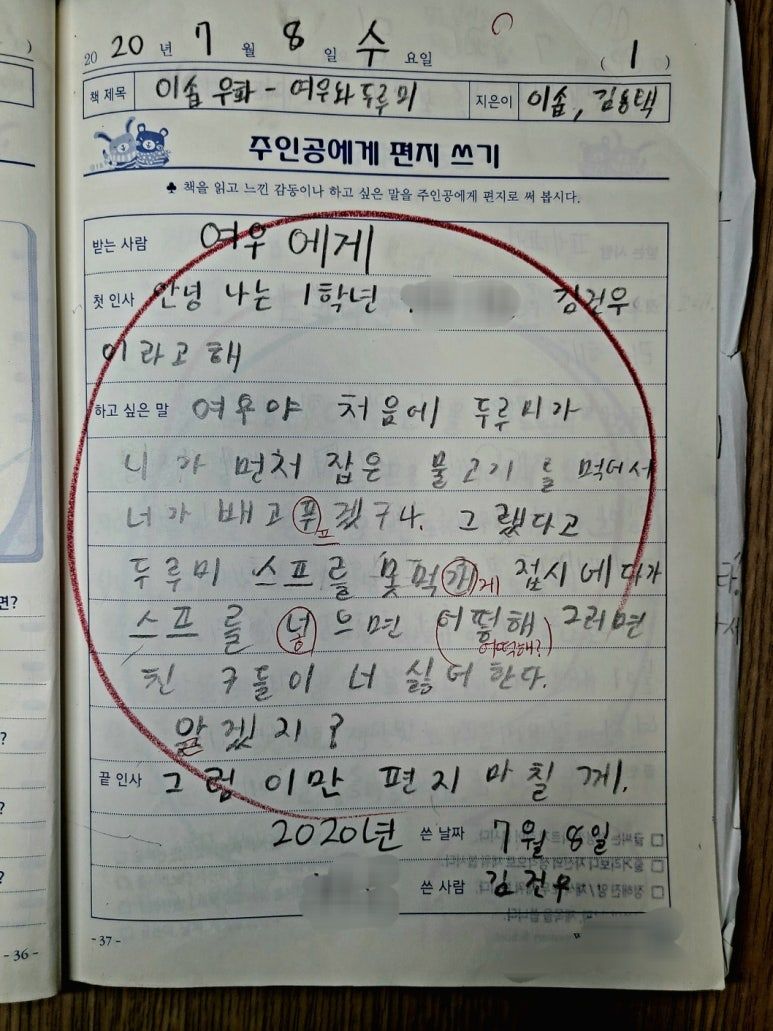 2020년 7월 8일 수요일 (1)
책 제목 이솝 우화 - 여우와 두루미 지은이 이솝, 김용택
주인공에게 편지 쓰기
♣ 책을 읽고 느낀 감동이나 하고 싶은 말을 주인공에게 편지로 써 봅시다.
받는 사람 여우에게
첫 인사 안녕 나는 1학년 김건우
이라고해
하고 싶은 말 여우야 처음에 두루미가
니가 먼처 잡은 물고기를 먹어서
너가 배고푸겠구나. 그랬다고
프
두루미 스프를 못먹개 접시에다가
게
스프를 넣으면 어떻해 그러면
어떡해?
친구들이 너 싫어한다.
알겠지?
끝 인사 그럼 이만 편지 마칠께.
2020년 쓴 날짜 7월 8일
쓴 사람 김건우
- 37 -
- 36 -
면?
?
?
?